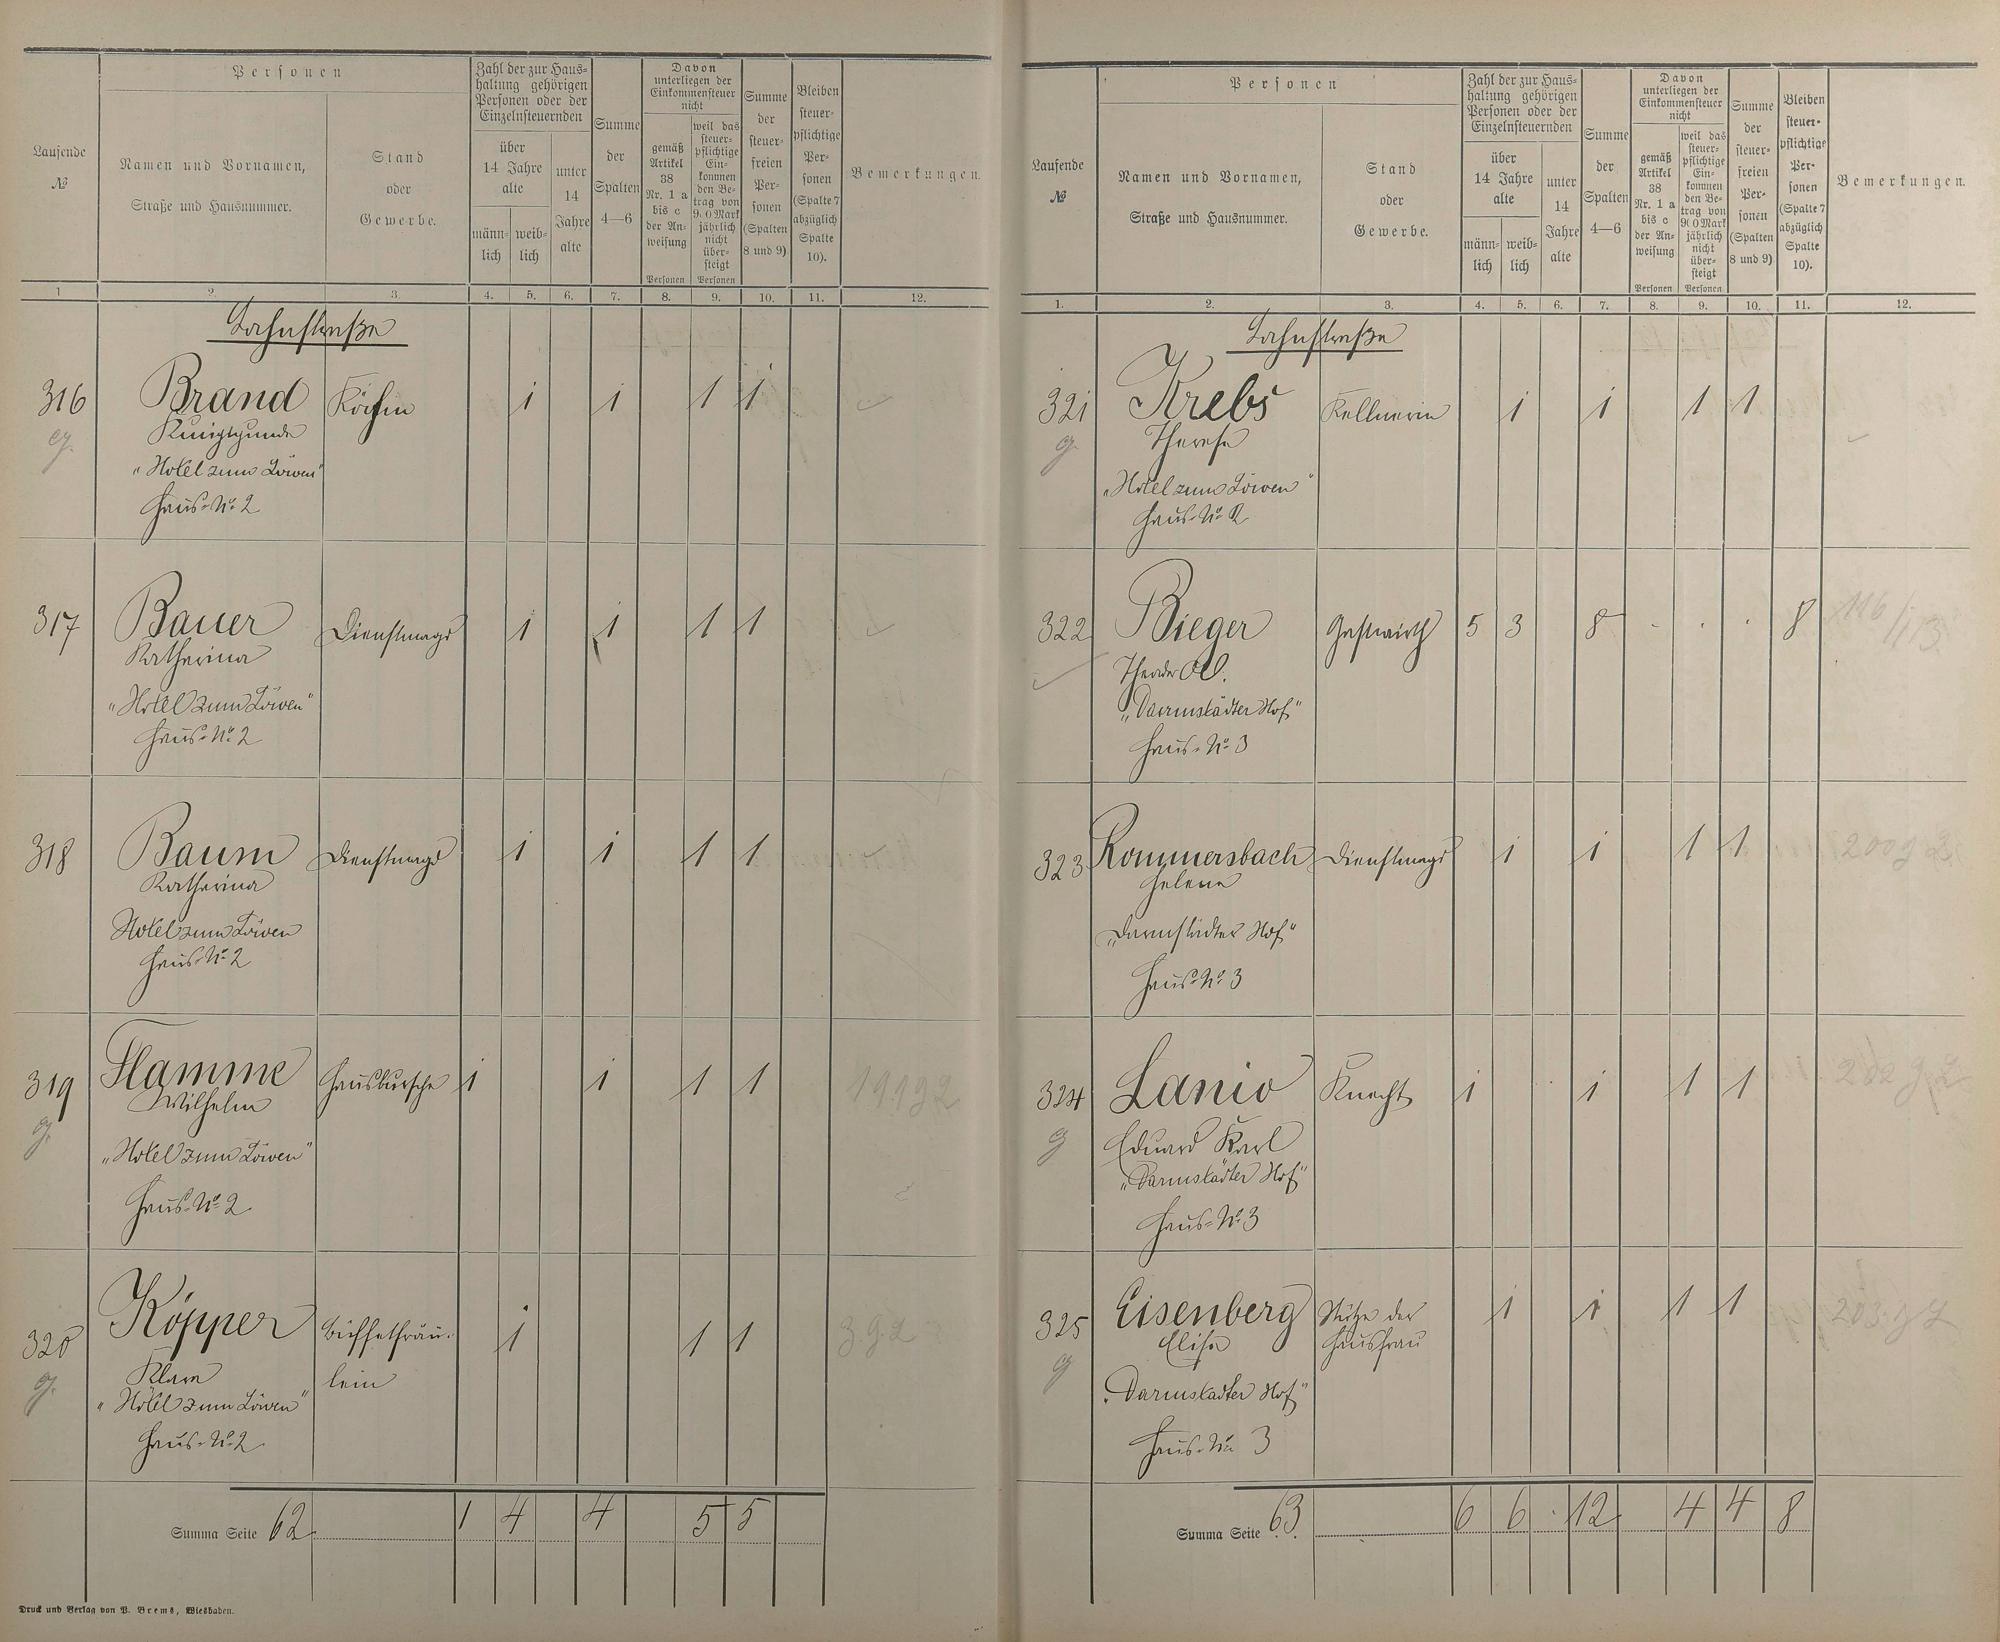 Laufende
№
Personen
Namen und Vornamen,
Straße und Hausnummer.
Stand
oder
Gewerbe.
Zahl der zur Haus-
haltung gehörigen
Personen oder der
Einzelnsteuernden
über
14 Jahre
alte
männ-
lich
weib-
lich
unter
14
Jahre
alte
Summe
der
Spalten
4—6
Davon
unterliegen der
Einkommensteuer
nicht
gemäß
Artikel
38
Nr. 1 a
bis c
der An-
weisung
Personen
weil das
steuer-
pflichtige
Ein-
kommen
den Be-
trag von
900 Mark
jährlich
nicht
über-
steigt
Personen
Summe
der
steuer-
freien
Per-
sonen
(Spalten
8 und 9)
Bleiben
steuer-
pflichtige
Per-
sonen
(Spalte 7
abzüglich
Spalte
10).
Bemerkungen.
1 2. 3. 4. 5. 6. 7. 8. 9. 10. 11. 12.
Bahnstraße
316 Brand Köchin 1 1 1 1
g.
Kunigunde
"Hotel zum Löwen"
Haus-No. 2
317 Bauer Dienstmagd 1 1 1 1
Katharina
"Hotel zum Löwen"
Haus-No. 2
318 Baum Dienstmagd 1 1 1 1
Katharina
Hotel zum Löwen
Haus-No. 2
319 Flamme Hausbursche 1 1 1 1
g.
Wilhelm
"Hotel zum Löwen"
Haus-No. 2
320 Köpper Büffetfräu- 1 1 1
g.
Klara lein
"Hotel zum Löwen"
Haus-No. 2
Summa Seite 62 1 4 4 5 5
Druck und Verlag von P. Brems, Wiesbaden.
Laufende
№
Personen
Namen und Vornamen,
Straße und Hausnummer.
Stand
oder
Gewerbe.
Zahl der zur Haus-
haltung gehörigen
Personen oder der
Einzelnsteuernden
über
14 Jahre
alte
männ-
lich
weib-
lich
unter
14
Jahre
alte
Summe
der
Spalten
4—6
Davon
unterliegen der
Einkommensteuer
nicht
gemäß
Artikel
38
Nr. 1 a
bis c
der An-
weisung
Personen
weil das
steuer-
pflichtige
Ein-
kommen
den Be-
trag von
900 Mark
jährlich
nicht
über-
steigt
Personen
Summe
der
steuer-
freien
Per-
sonen
(Spalten
8 und 9)
Bleiben
steuer-
pflichtige
Per-
sonen
(Spalte 7
abzüglich
Spalte
10).
Bemerkungen.
1. 2. 3. 4. 5. 6. 7. 8. 9. 10. 11. 12.
Bahnstraße
321 Krebs Kellnerin 1 1 1 1
g.
Therese
"Hotel zum Löwen"
Haus-No. 2
322 Bieger Gastwirth 5 3 8 . . . 8
Theodor
"Darmstädter Hof"
Haus-No. 3
323 Rommersbach Dienstmagd 1 1 1 1
Helene
"Darmstädter Hof"
Haus-No. 3
324 Lanio Knecht 1 1 1 1
g
Eduard Karl
"Darmstädter Hof"
Haus-No. 3
325 Eisenberg Stütze der 1 1 1 1
g
Elise Hausfrau
"Darmstädter Hof"
Haus-No. 3
Summa Seite 63. 6 6 . 12 4 4 8